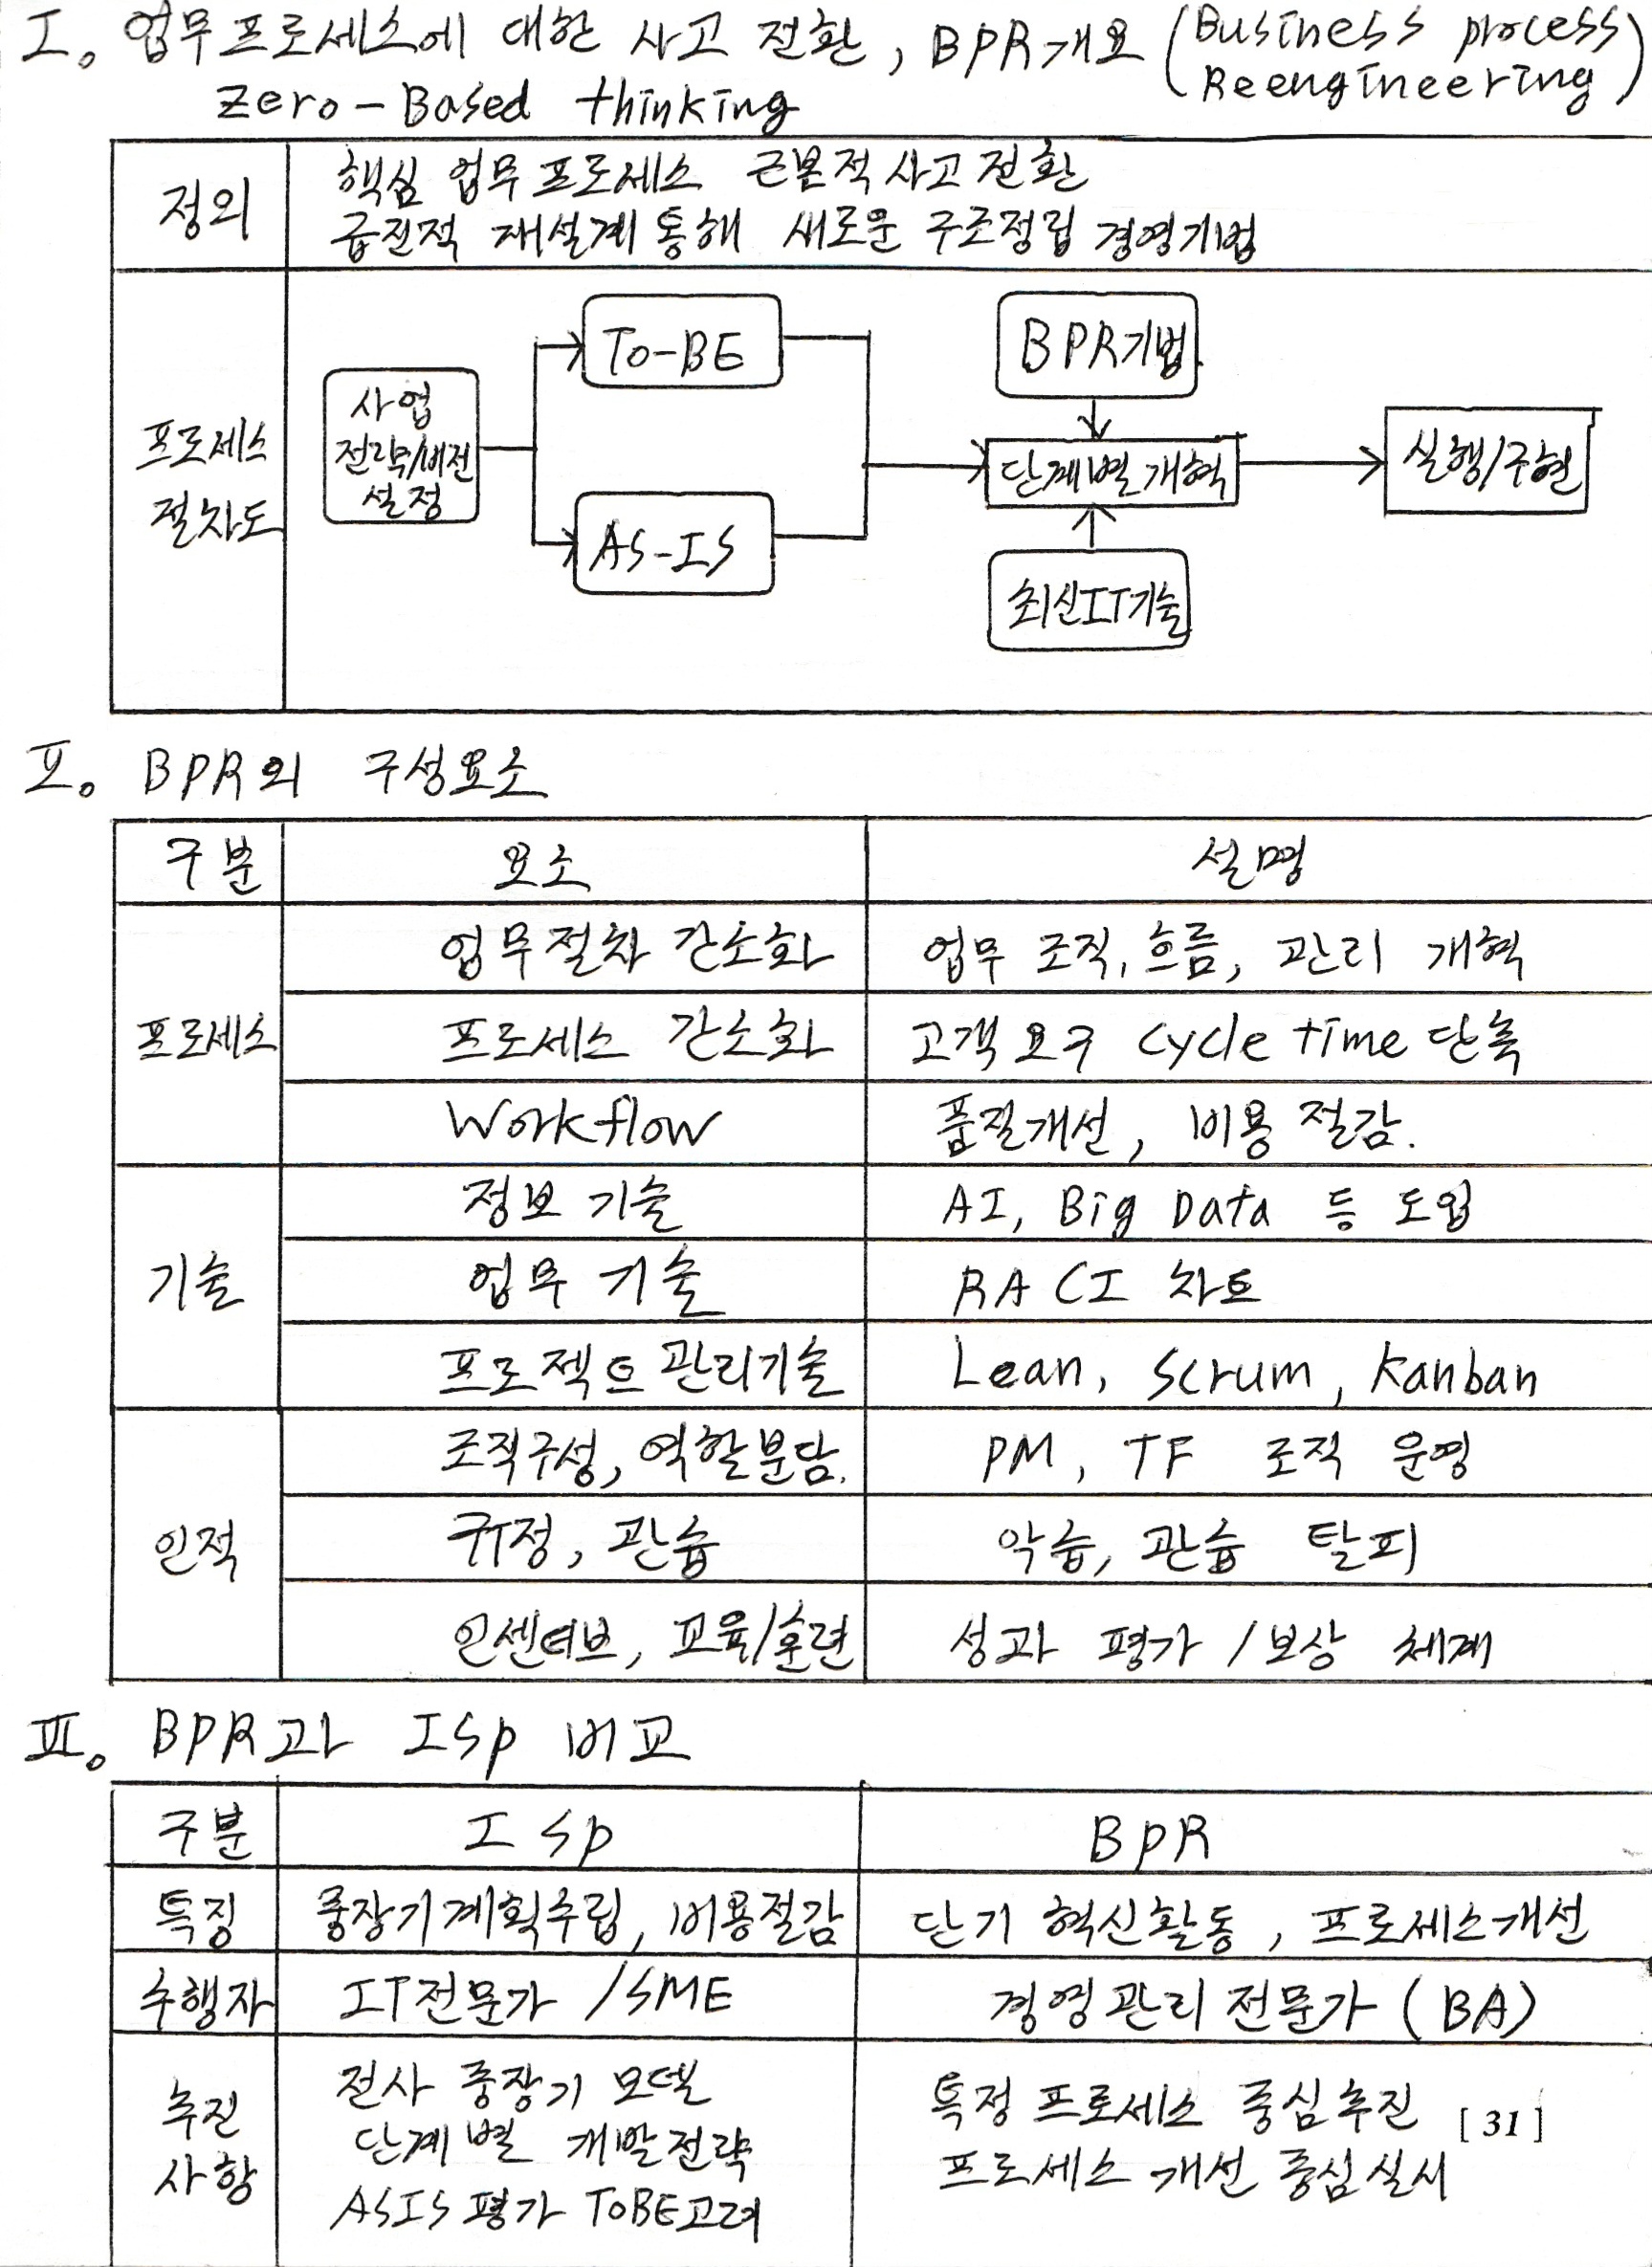 I。 업무프로세스에 대한 사고 전환, BPR개요 (Business process Reengineering)
Zero-Based thinking
정의
핵심 업무프로세스 근본적사고전환
급진적 재설계통해 새로운 구조정립 경영기법
프로세스
절차도
사업
전략/비전
설정
To-BE
AS-IS
BPR기법.
단계별개혁
최신IT기술
실행/구현
II。 BPR의 구성요소
구분 요소 설명
프로세스
업무절차 간소화 업무 조직, 흐름, 관리 개혁
프로세스 간소화 고객요구 cycle time 단축
Workflow 품질개선, 비용 절감.
기술
정보 기술 AI, Big Data 등 도입
업무 기술 RACI 차트
프로젝트 관리기술 Lean, Scrum, Kanban
인적
조직구성, 역할분담. PM, TF 조직 운영
규정, 관습 악습, 관습 탈피
인센티브, 교육/훈련 성과 평가 / 보상 체계
III。 BPR과 ISP 비교
구분 ISP BPR
특징 중장기계획수립, 비용절감 단기 혁신활동, 프로세스개선
수행자 IT전문가 /SME 경영관리전문가 (BA)
추진
사항
전사 중장기 모델
단계별 개발전략
ASIS평가 TOBE고려
특정 프로세스 중심추진
프로세스 개선 중심실시
[31]